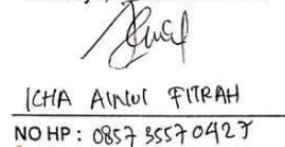 ICHA AINUL FITRAH
NO HP : 0857 3557 0427